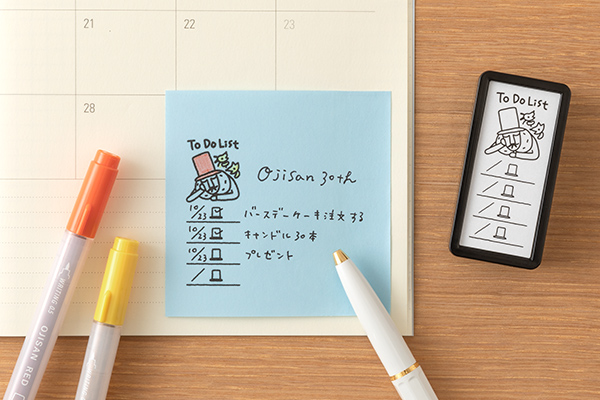 21
22
23
28
To Do List
Ojisan 30th
10/23 バースデーケーキ注文する
10/23 キャンドル30本
10/23 プレゼント
/
To Do List
/
/
/
/
WRITING 85
OJISAN RED